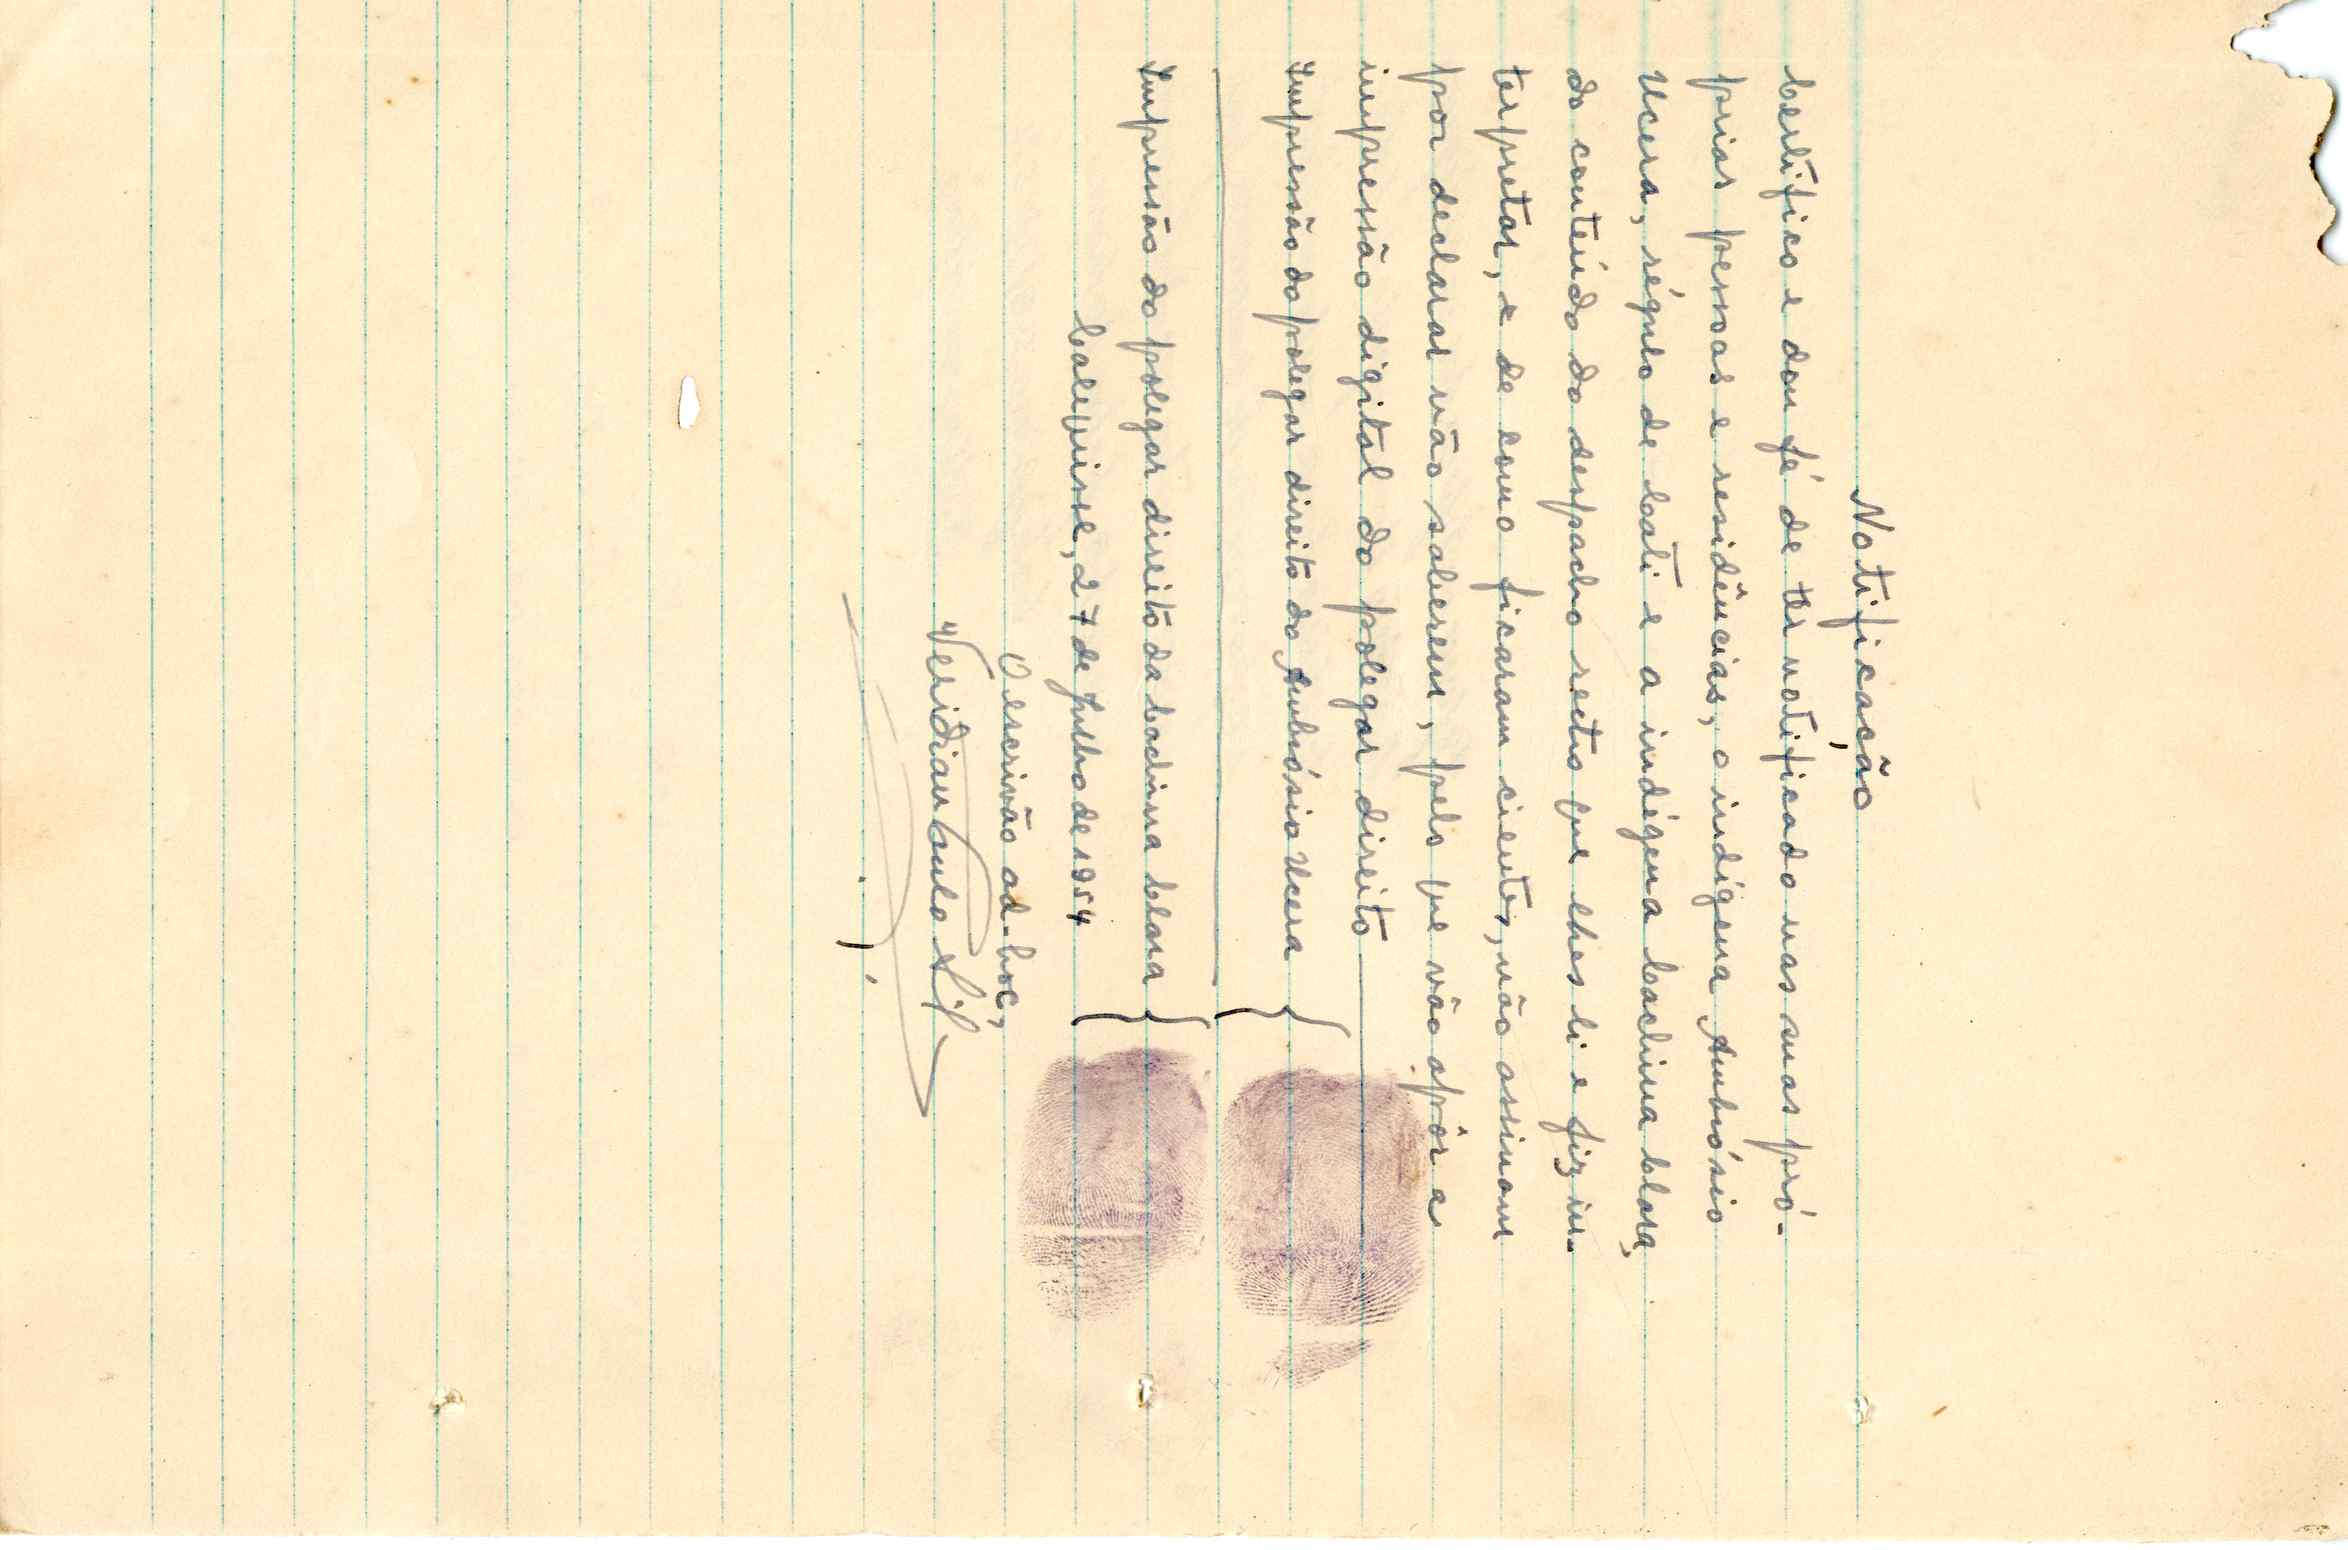 Notificação
Certifico e dou fé de ter notificado nas suas pró-
prias pessoas e residências, o indígena Ambrósio
Ucera, régulo de Cati e a indígena Cachima Clara,
do conteúdo do despacho rectro que lhes li e fiz in-
terpretar, e de como ficaram cientes, não assinam
por declarar não saberem, pelo que vão apôr a
impressão digital do polegar direito
Impressão do polegar direito do Ambrósio Ucera
Impressão do polegar direito da Cachima Clara
27 de Julho de 1954
O escrivão ad-hoc,